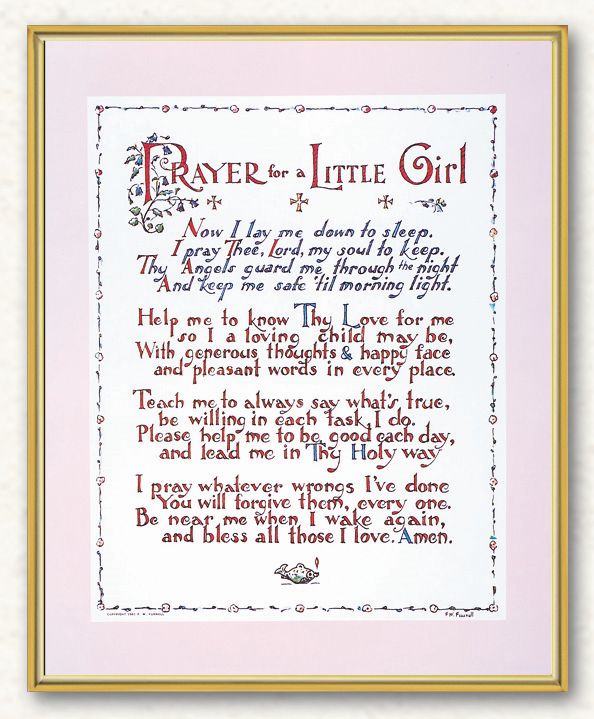 PRAYER for a LITTLE Girl
Now I lay me down to sleep.
I pray Thee, Lord, my soul to keep.
Thy Angels guard me through the night
And keep me safe 'til morning light.
Help me to know Thy Love for me
so I a loving child may be,
With generous thoughts & happy face
and pleasant words in every place.
Teach me to always say what's true,
be willing in each task I do.
Please help me to be good each day,
and lead me in Thy Holy way
I pray whatever wrongs I've done
You will forgive them, every one.
Be near me when I wake again,
and bless all those I love. Amen.